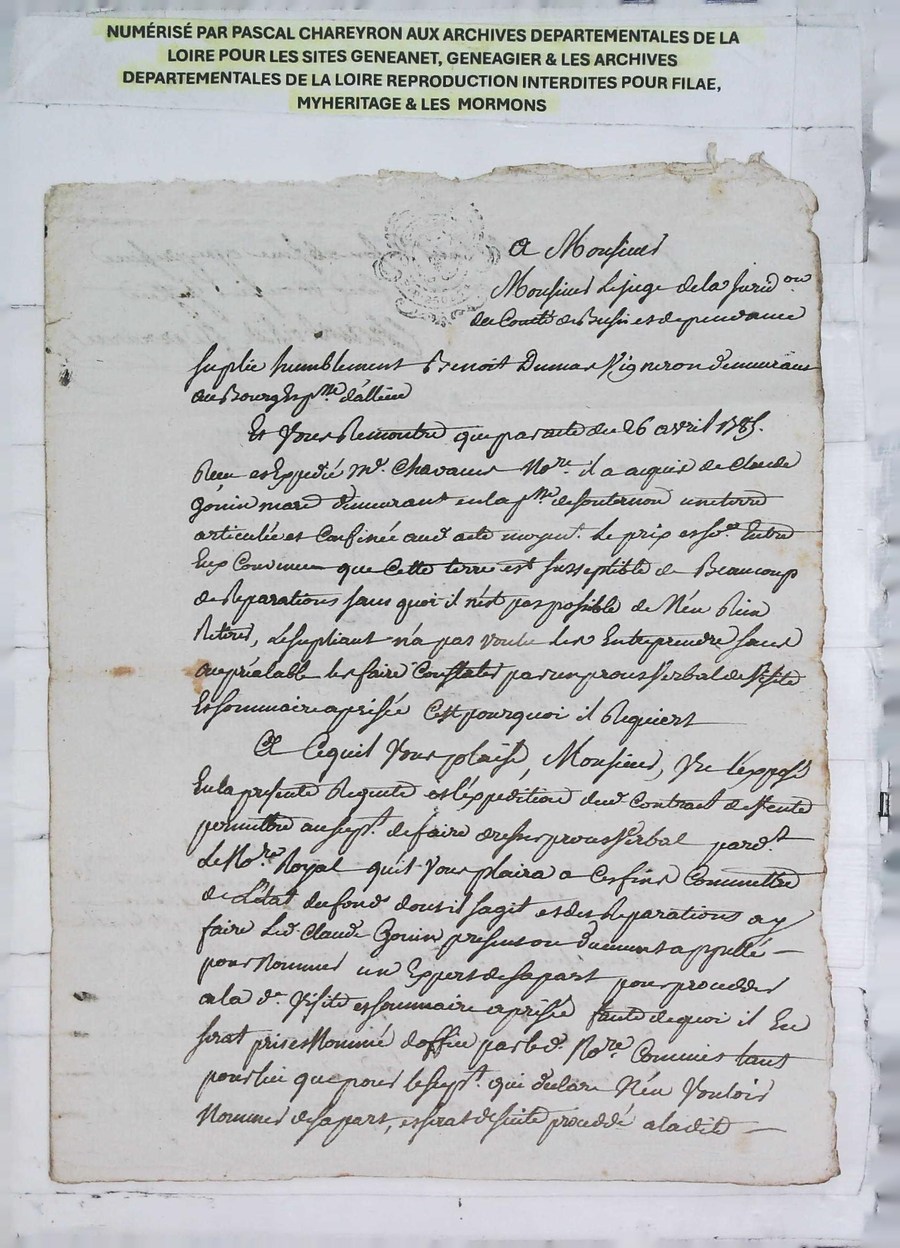 NUMÉRISÉ PAR PASCAL CHAREYRON AUX ARCHIVES DEPARTEMENTALES DE LA
LOIRE POUR LES SITES GENEANET, GENEAGIER & LES ARCHIVES
DEPARTEMENTALES DE LA LOIRE REPRODUCTION INTERDITES POUR FILAE,
MYHERITAGE & LES MORMONS
A Monsieur
Monsieur le juge de la Jurid.on
du Comté de Bussi et dependance
Suplie humblement Benoit Dumas Vigneron demeurant
au Bourg et p.sse d'allieu
Et Vous Remontre que par acte du 26 avril 1785.
Recu et Expedié M.e Chavanne No.re il a acquis de Claude
Gouin mard demeurant en la p.sse de souternon une terre
articulée et Confinée aud. acte moyen.t le prix et so.e Entre
Eux Convenue que Cette terre est susseptible de Beaucoup
de Reparations sans quoi il n'est pas possible de N'en Rien
Retirer, le supliant n'a pas voulu les Entreprendre sans
au préalable les faire Constater par un proces Verbal de Visite
Et sommaire aprisée C'est pourquoi il Requiert
A Ce quil Vous plaise, Monsieur, Vu l'exposé
En la presente Requete et l'expedition dud. Contract de Vente
permettre au supt. de faire dresser proces Verbal pard.t
Le No.re Royal qu'il Vous plaira a Ces fins Commettre
de L'etat du fond dont il s'agit et des Reparations a y
faire Led. Claude Gouin present ou duement appellé —
pour Nommer un Expert de sa part pour proceder
a la d.e Visite et sommaire aprisée faute de quoi il En
serat pris et Nommé d'office par led. No.re Commis tant
pour lui que pour le supt. qui declare N'en Vouloir
Nommer de sa part, et serat de suite procedé a ladite —